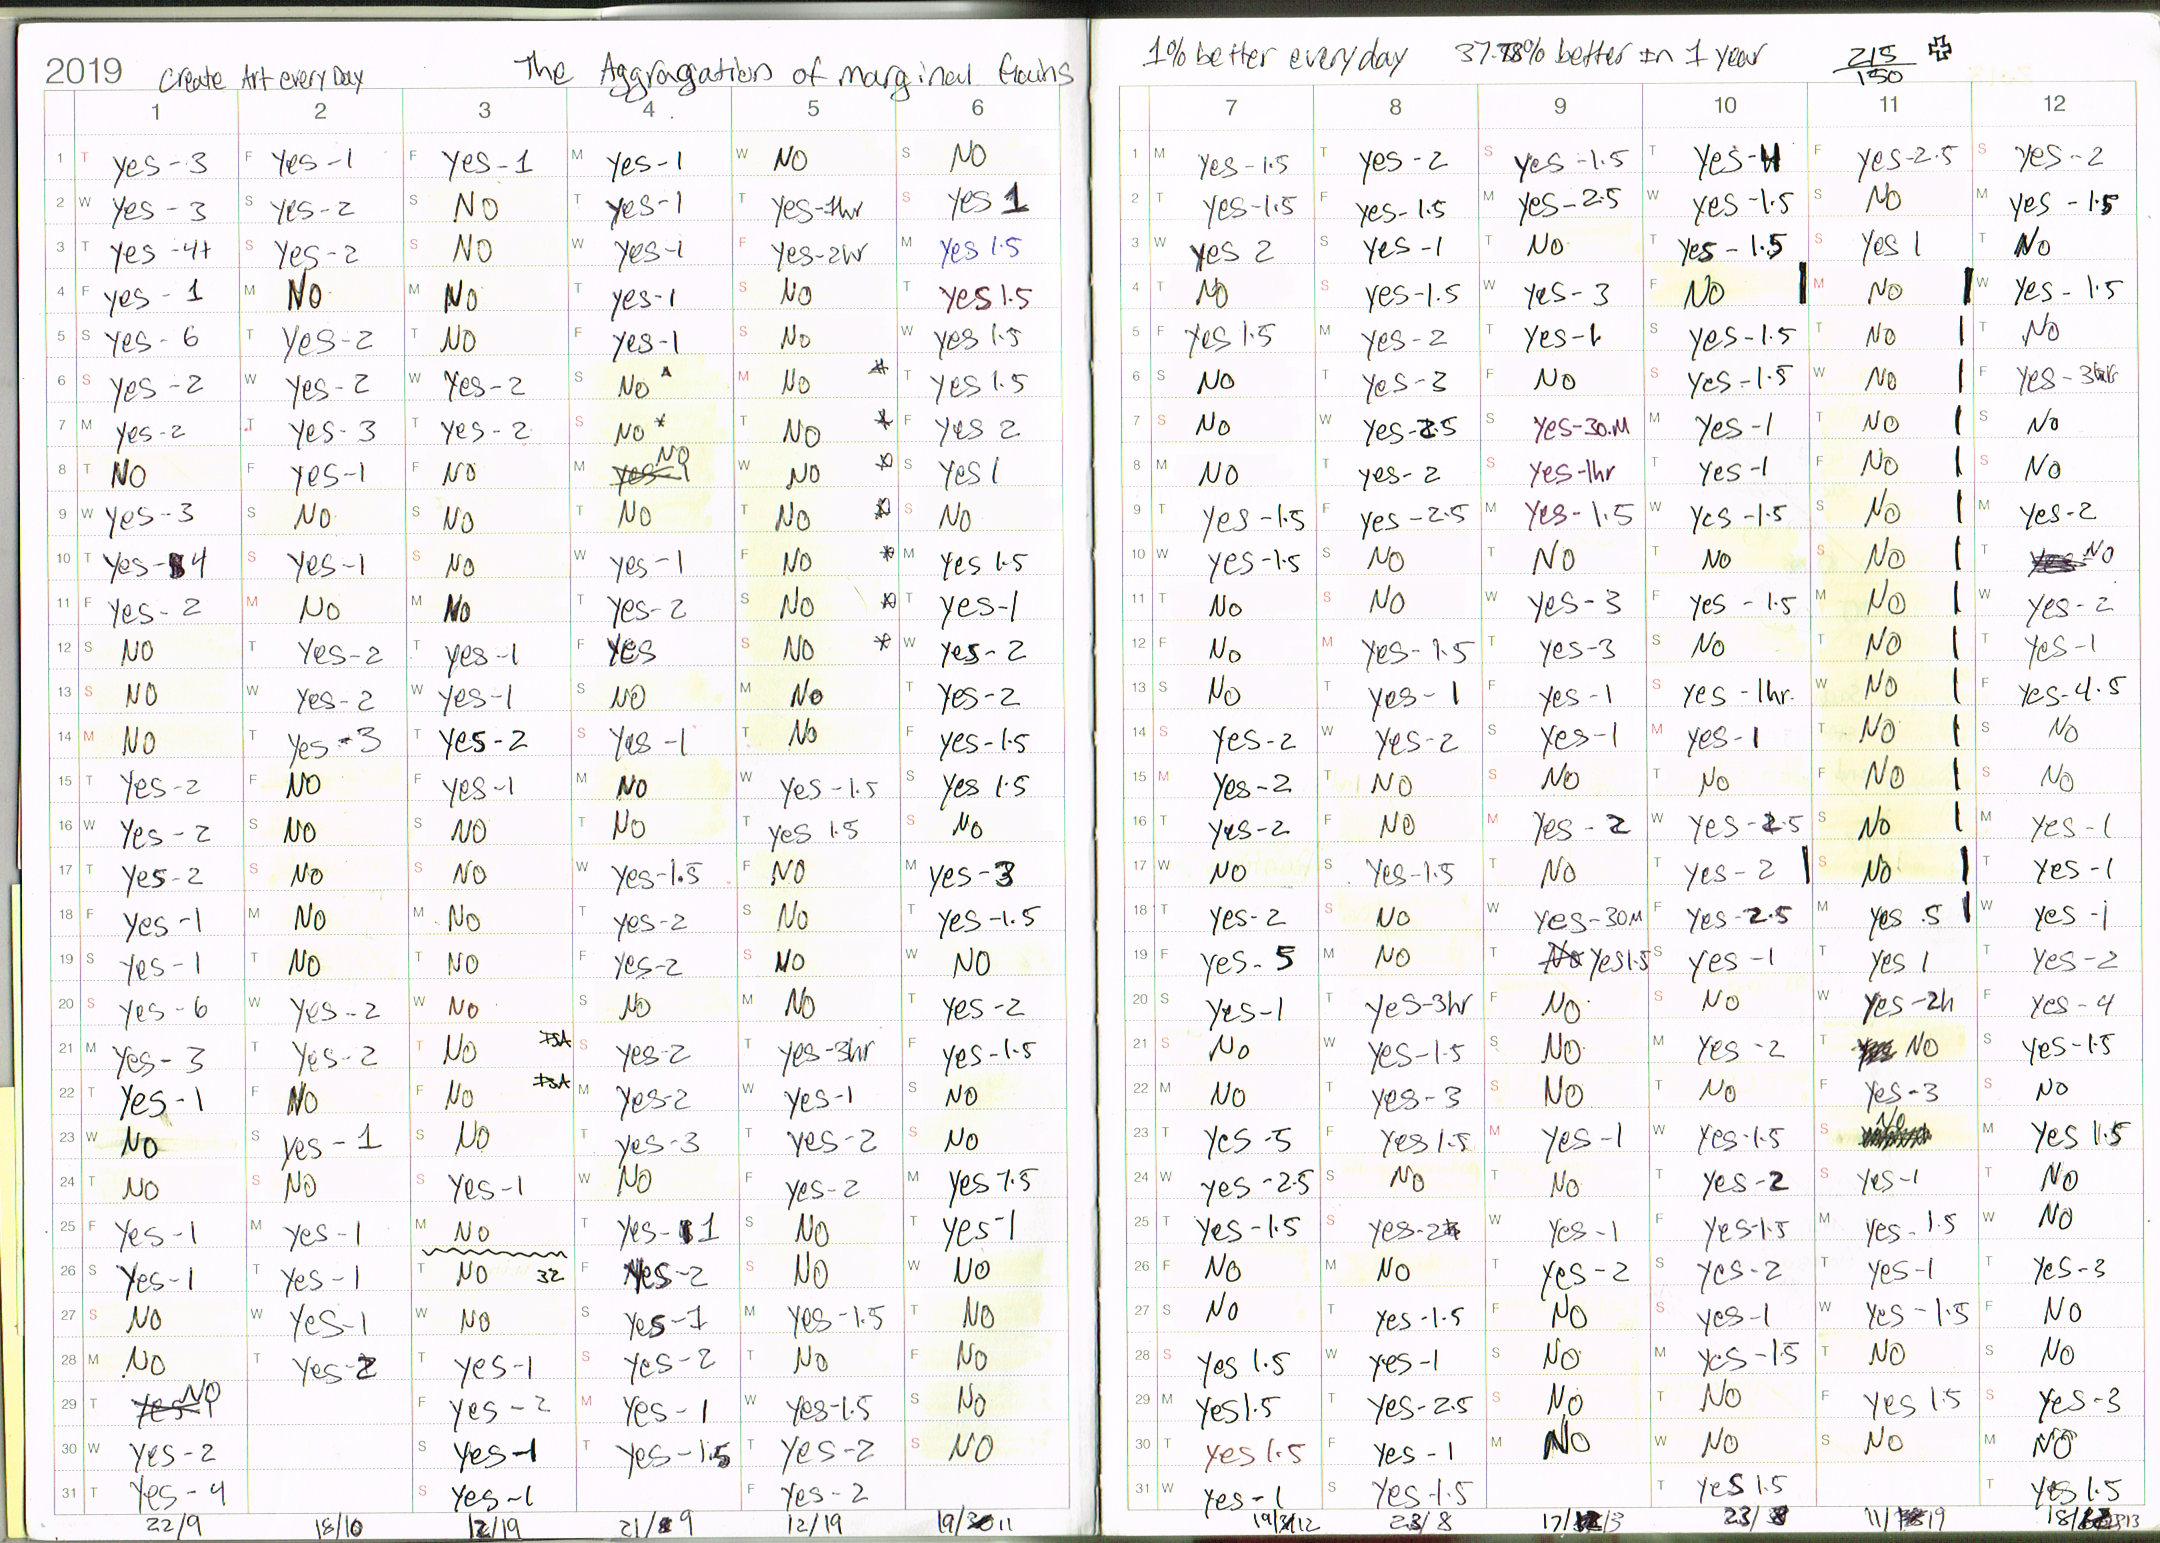 2019 Create Art every Day The Aggragation of marginal Gains 1% better every day 37.78% better in 1 year 215/150
1 2 3 4 5 6 7 8 9 10 11 12
1 T Yes-3 F Yes-1 F Yes-1 M Yes-1 W NO S NO 1 M Yes-1.5 T Yes-2 S Yes-1.5 T Yes- F Yes-2.5 S Yes-2
2 W Yes-3 S Yes-2 S NO T Yes-1 T Yes-1hr S Yes 1 2 T Yes-1.5 F Yes-1.5 M Yes-2.5 W Yes-1.5 S No M Yes-1.5
3 T Yes-4+ S Yes-2 S NO W Yes-1 F Yes-2hr M Yes 1.5 3 W Yes 2 S Yes-1 T No T Yes-1.5 S Yes 1 T No
4 F Yes-1 M No M No T Yes-1 S No T Yes 1.5 4 T No S Yes-1.5 W Yes-3 F No M No W Yes-1.5
5 S Yes-6 T Yes-2 T NO F Yes-1 S No W Yes 1.5 5 F Yes 1.5 M Yes-2 T Yes-1 S Yes-1.5 T No T No
6 S Yes-2 W Yes-2 W Yes-2 S No M No * T Yes 1.5 6 S No T Yes-3 F No S Yes-1.5 W No F Yes-3hr
7 M Yes-2 T Yes-3 T Yes-2 S No * T No * F Yes 2 7 S No W Yes-2.5 S Yes-30.M M Yes-1 T No S No
8 T NO F Yes-1 F NO M Yes-1 NO W No * S Yes 1 8 M No T Yes-2 S Yes-1hr T Yes-1 F No S No
9 W Yes-3 S No S No T No T No * S No 9 T Yes-1.5 F Yes-2.5 M Yes-1.5 W Yes-1.5 S No M Yes-2
10 T Yes-4 S Yes-1 S No W Yes-1 F No * M Yes 1.5 10 W Yes-1.5 S No T No T No S No T Yes NO
11 F Yes-2 M No M No T Yes-2 S No * T Yes-1 11 T No S No W Yes-3 F Yes-1.5 M No W Yes-2
12 S NO T Yes-2 T Yes-1 F Yes S No * W Yes-2 12 F No M Yes-1.5 T Yes-3 S No T No T Yes-1
13 S NO W Yes-2 W Yes-1 S No M No T Yes-2 13 S No T Yes-1 F Yes-1 S Yes-1hr. W No F Yes-4.5
14 M NO T Yes-3 T Yes-2 S Yes-1 T No F Yes-1.5 14 S Yes-2 W Yes-2 S Yes-1 M Yes-1 T No S No
15 T Yes-2 F No F Yes-1 M No W Yes-1.5 S Yes 1.5 15 M Yes-2 T No S No T No F No S No
16 W Yes-2 S No S No T No T Yes 1.5 S No 16 T Yes-2 F No M Yes-2 W Yes-2.5 S No M Yes-1
17 T Yes-2 S No S No W Yes-1.5 F No M Yes-3 17 W No S Yes-1.5 T No T Yes-2 S No T Yes-1
18 F Yes-1 M No M No T Yes-2 S No T Yes-1.5 18 T Yes-2 S No W Yes-30M F Yes-2.5 M Yes .5 W Yes-1
19 S Yes-1 T No T NO F Yes-2 S No W NO 19 F Yes-5 M No T No Yes1.5 S Yes-1 T Yes 1 T Yes-2
20 S Yes-6 W Yes-2 W No S No M No T Yes-2 20 S Yes-1 T Yes-3hr F No S No W Yes-2h F Yes-4
21 M Yes-3 T Yes-2 T No S Yes-2 T Yes-3hr F Yes-1.5 21 S No W Yes-1.5 S No M Yes-2 T NO S Yes-1.5
22 T Yes-1 F No F No M Yes-2 W Yes-1 S No 22 M No T Yes-3 S No T No F Yes-3 S No
23 W No S Yes-1 S No T Yes-3 T Yes-2 S No 23 T Yes-5 F Yes 1.5 M Yes-1 W Yes-1.5 S No M Yes 1.5
24 T No S No S Yes-1 W No F Yes-2 M Yes 7.5 24 W Yes-2.5 S No T No T Yes-2 S Yes-1 T No
25 F Yes-1 M Yes-1 M No T Yes-1 S No T Yes-1 25 T Yes-1.5 S Yes-2 W Yes-1 F Yes-1.5 M Yes-1.5 W No
26 S Yes-1 T Yes-1 T No 32 F Yes-2 S No W No 26 F No M No T Yes-2 S Yes-2 T Yes-1 T Yes-3
27 S No W Yes-1 W No S Yes-1 M Yes-1.5 T No 27 S No T Yes-1.5 F No S Yes-1 W Yes-1.5 F No
28 M No T Yes-2 T Yes-1 S Yes-2 T No F No 28 S Yes 1.5 W Yes-1 S No M Yes-1.5 T No S No
29 T Yes-1 NO F Yes-2 M Yes-1 W Yes-1.5 S No 29 M Yes1.5 T Yes-2.5 S No T No F Yes 1.5 S Yes-3
30 W Yes-2 S Yes-1 T Yes-1.5 T Yes-2 S No 30 T Yes 1.5 F Yes-1 M No W No S No M No
31 T Yes-4 S Yes-1 F Yes-2 31 W Yes-1 S Yes-1.5 T Yes 1.5 T Yes 1.5
22/9 18/10 12/19 21/9 12/19 19/11 19/12 23/8 17/13 23/8 11/19 18/13